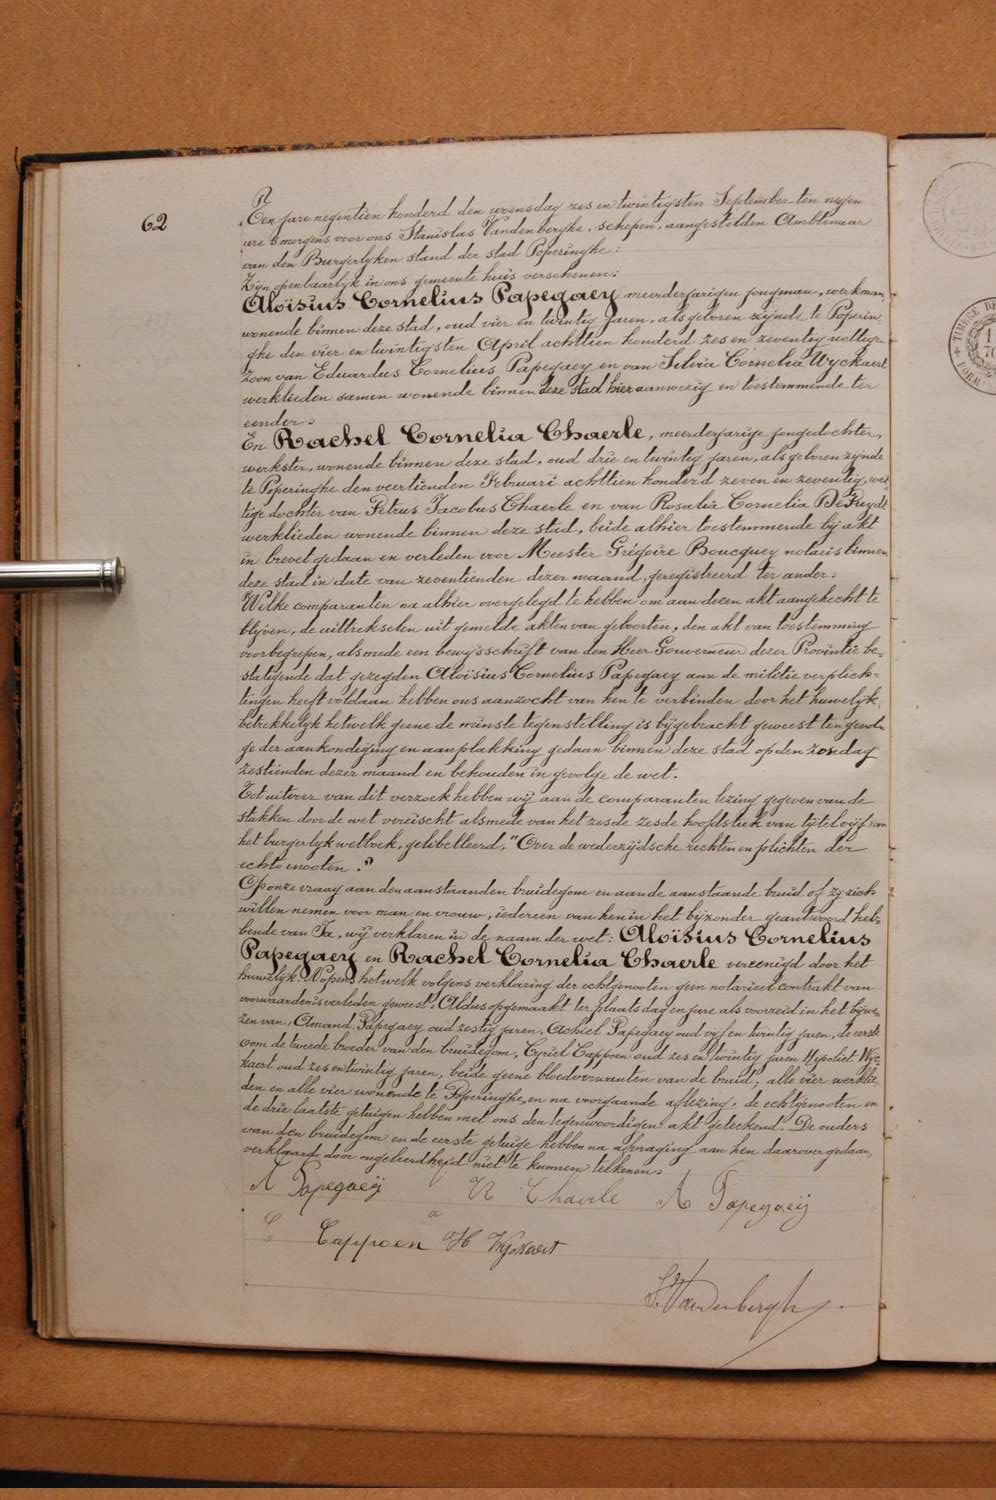 62
Ten jare negentien honderd den woensdag zes en twintigsten September ten negen
ure 's morgens voor ons Stanislas Vandenberghe, schepen, aangestelden Ambtenaar
van den Burgerlyken stand der stad Poperinghe:
Zijn openbaarlyk in ons gemeente huis verschenen:
Aloïsius Cornelius Papegaey meerderjarigen jongman, werkman,
wonende binnen deze stad, oud vier en twintig jaren, als geboren zijnde te Poperin-
ghe den vier en twintigsten April achttien honderd zes en zeventig wettige
zoon van Eduardus Cornelius Papegaey en van Silvia Cornelia Wyckaert
werklieden samen wonende binnen deze stad hier aanwezig en toestemmende ter
eender:
En Rachel Cornelia Chaerle, meerderjarige jongedochter,
werkster, wonende binnen deze stad, oud drie en twintig jaren, als geboren zijnde
te Poperinghe den veertienden Februari achttien honderd zeven en zeventig, wet-
tige dochter van Petrus Jacobus Chaerle en van Rosalia Cornelia De Ruydt
werklieden wonende binnen deze stad, beide alhier toestemmende bij akt
in brevet gedaan en verleden voor Meester Grégoire Boucquey notaris binnen
deze stad in date van zeventienden dezer maand, geregistreerd ter ander:
Welke comparanten na alhier overgelegd te hebben om aan dezen akt aangehecht te
blijven, de uittrekselen uit gemelde akten van geboorten, den akt van toestemming
voorbegrepen, alsmede een bewysschrift van den Heer Gouverneur dezer Provintie be-
statigende dat gezegden Aloïsius Cornelius Papegaey aan de militie verplich-
tingen heeft voldaan hebben ons aanzocht van hen te verbinden door het huwelyk,
betrekkelyk hetwelk geene de minste tegenstelling is bijgebracht geweest ten gevol-
ge der aankondiging en aanplakking gedaan binnen deze stad op den zondag
zestienden dezer maand en behouden in gevolge de wet.
Tot uitvoer van dit verzoek hebben wij aan de comparanten lezing gegeven van de
stukken door de wet vereischt alsmede van het zesde zesde hoofdstuk van tytel vijf van
het burgerlyk wetboek, getibelleerd, "Over de wederzijdsche rechten en plichten der
echtgenooten."
Op onze vraag aan den aanstaanden bruidegom en aan de aanstaande bruid of zy zich
willen nemen voor man en vrouw, iedereen van hen in het bijzonder geantwoord heb-
bende van Ja, wij verklaren in de naam der wet: Aloïsius Cornelius
Papegaey en Rachel Cornelia Chaerle vereenigd door het
huwelyk. Nopens hetwelk volgens verklaring der echtgenooten geen notarieel contrakt van
voorwaarden is verleden geweest. Aldus opgemaakt ter plaats dag en jare als voorzeid in het bijwe-
zen van, Amand Papegaey oud zestig jaren, Achiel Papegaey oud vijf en twintig jaren, de eerste
oom de tweede broeder van den bruidegom, Cyriel Cappoen oud zes en twintig jaren Hypoliet Wyc-
kaert oud zes en twintig jaren, beide geene bloedverwanten van de bruid, alle vier werklie-
den en alle vier wonende te Poperinghe, en na voorgaande aflezing, de echtgenooten en
de drie laatste getuigen hebben met ons den tegenwoordigen akt geteekend. De ouders
van den bruidegom en de eerste getuige hebben na afvraging aan hen daarover gedaan,
verklaard door ongeleerdheid niet te kunnen teekenen.
A Papegaeij R Chaerle A Papegaeij
C Cappoen H Wyckaert
S. Vandenberghe